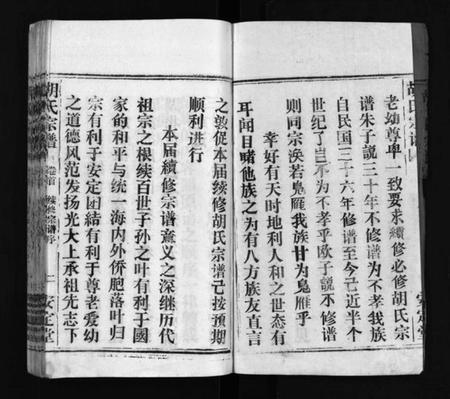 老幼尊卑一致要求续修必修胡氏宗
谱朱子説三十年不修谱为不孝我族
自民国三十六年修谱至今己近半个
世纪了岂不为不孝乎欧子説不修谱
则同宗涣若凫雁我族甘为凫雁乎
幸好有天时地利人和之世态有
耳闻目睹他族之为有八方族友直言
胡氏宗譜 卷首 续修宗谱序 二 安定堂
之敦促本届续修胡氏宗谱己按预期
顺利进行
本届續修宗谱意义之深继历代
祖宗之根续百世子孙之叶有利于國
家的和平与统一海内外侨胞落叶归
宗有利于安定团结有利于尊老爱幼
之道德风范发扬光大上承祖先志下